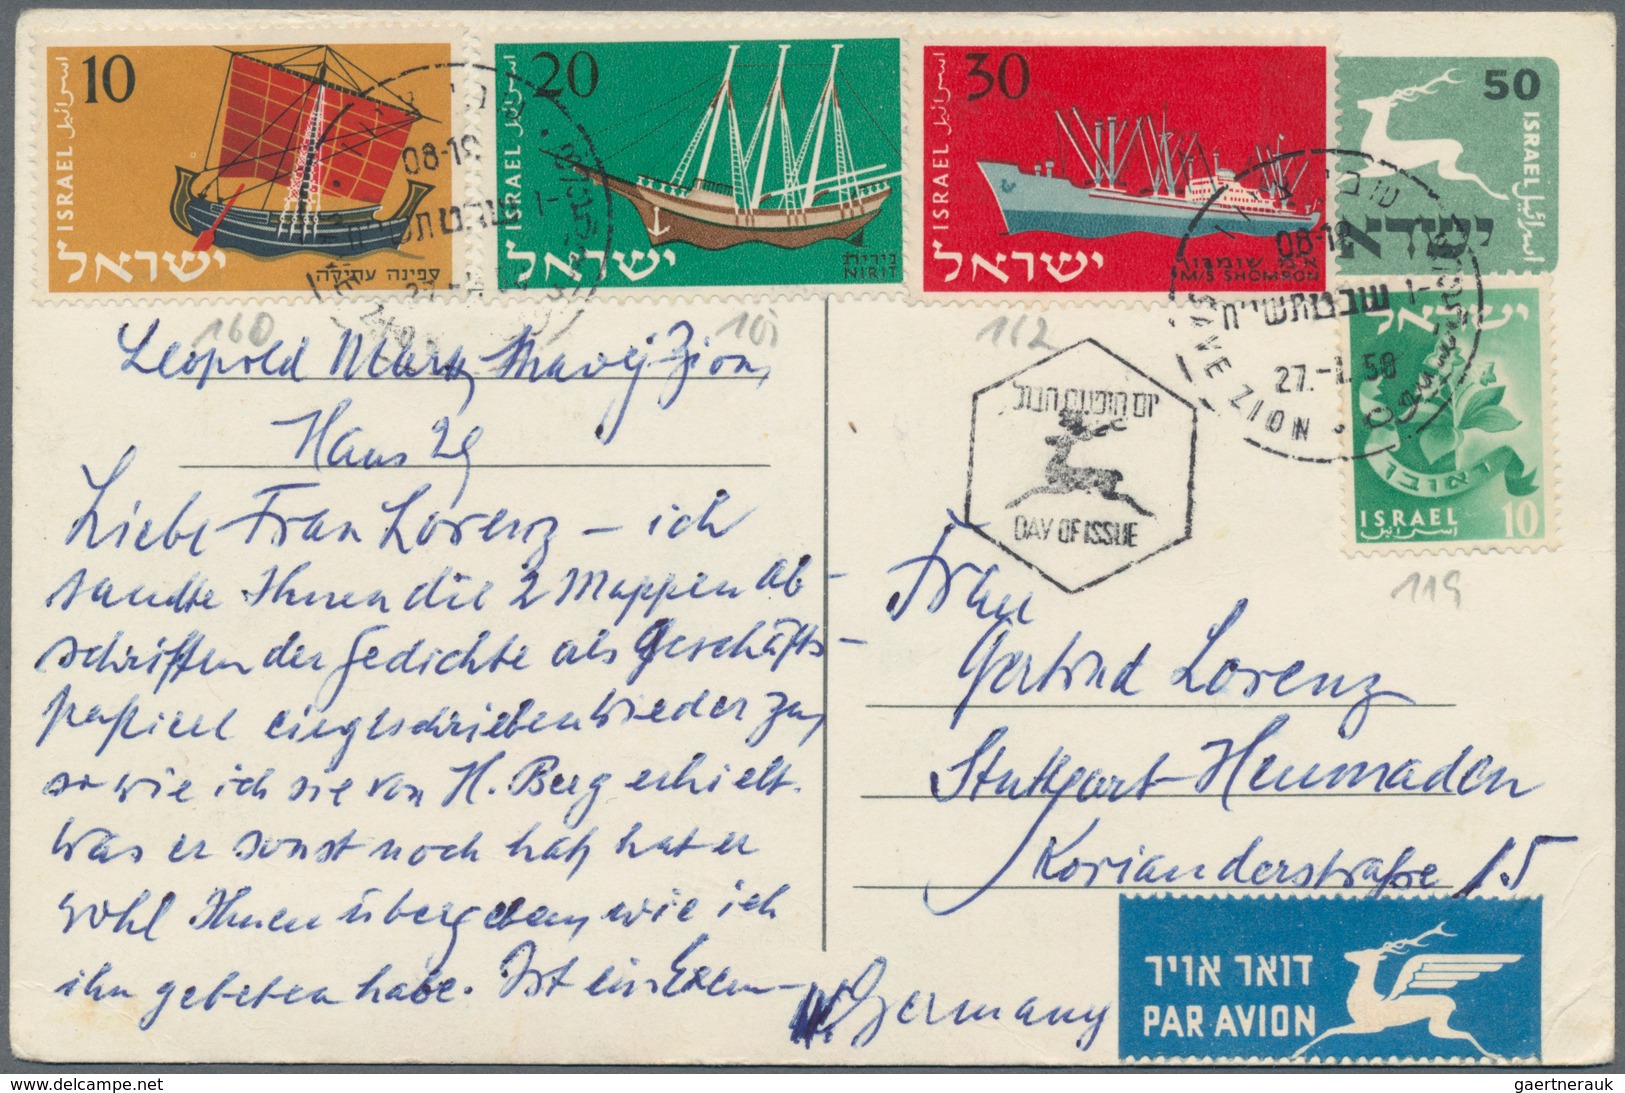 10
ISRAEL اسرائيل
ישראל
ספינה עתיקה
20
ISRAEL اسرائيل
ישראל
נירית
NIRIT
30
ISRAEL اسرائيل
ישראל
א״מ שומרון
M/S SHOMRON
50
ISRAEL اسرائيل
ישראל
08-18
08-18
שבט תשי״ח
27.-1.58
SHAVE ZION
ישראל
ראובן
ISRAEL 10
اسرائيل
יום הופעת הבול
DAY OF ISSUE
160
161
162
119
Leopold Marx, Shavej-Zion,
Haus 29
Liebe Frau Lorenz – ich
sandte Ihnen die 2 Mappen Ab-
schriften der Gedichte als Geschäfts-
papiere eingeschrieben wieder zu,
so wie ich sie von H. Berg erhielt.
Was er sonst noch hat, hat er
wohl Ihnen übergeben, wie ich
ihn gebeten habe. Ist ein Exem-
Frau
Gertrud Lorenz
Stuttgart-Heumaden
Korianderstraße 15
Germany
דואר אויר
PAR AVION
gaertnerauk @ delcampe.net